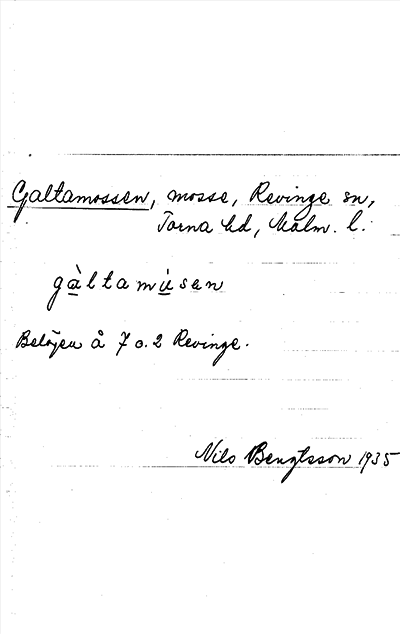 Galtamossen, mosse, Revinge sn,
Torna hd, Malm. l.
gàltamùsen
Belägen å 7 o. 2 Revinge.
Nils Bengtsson 1935